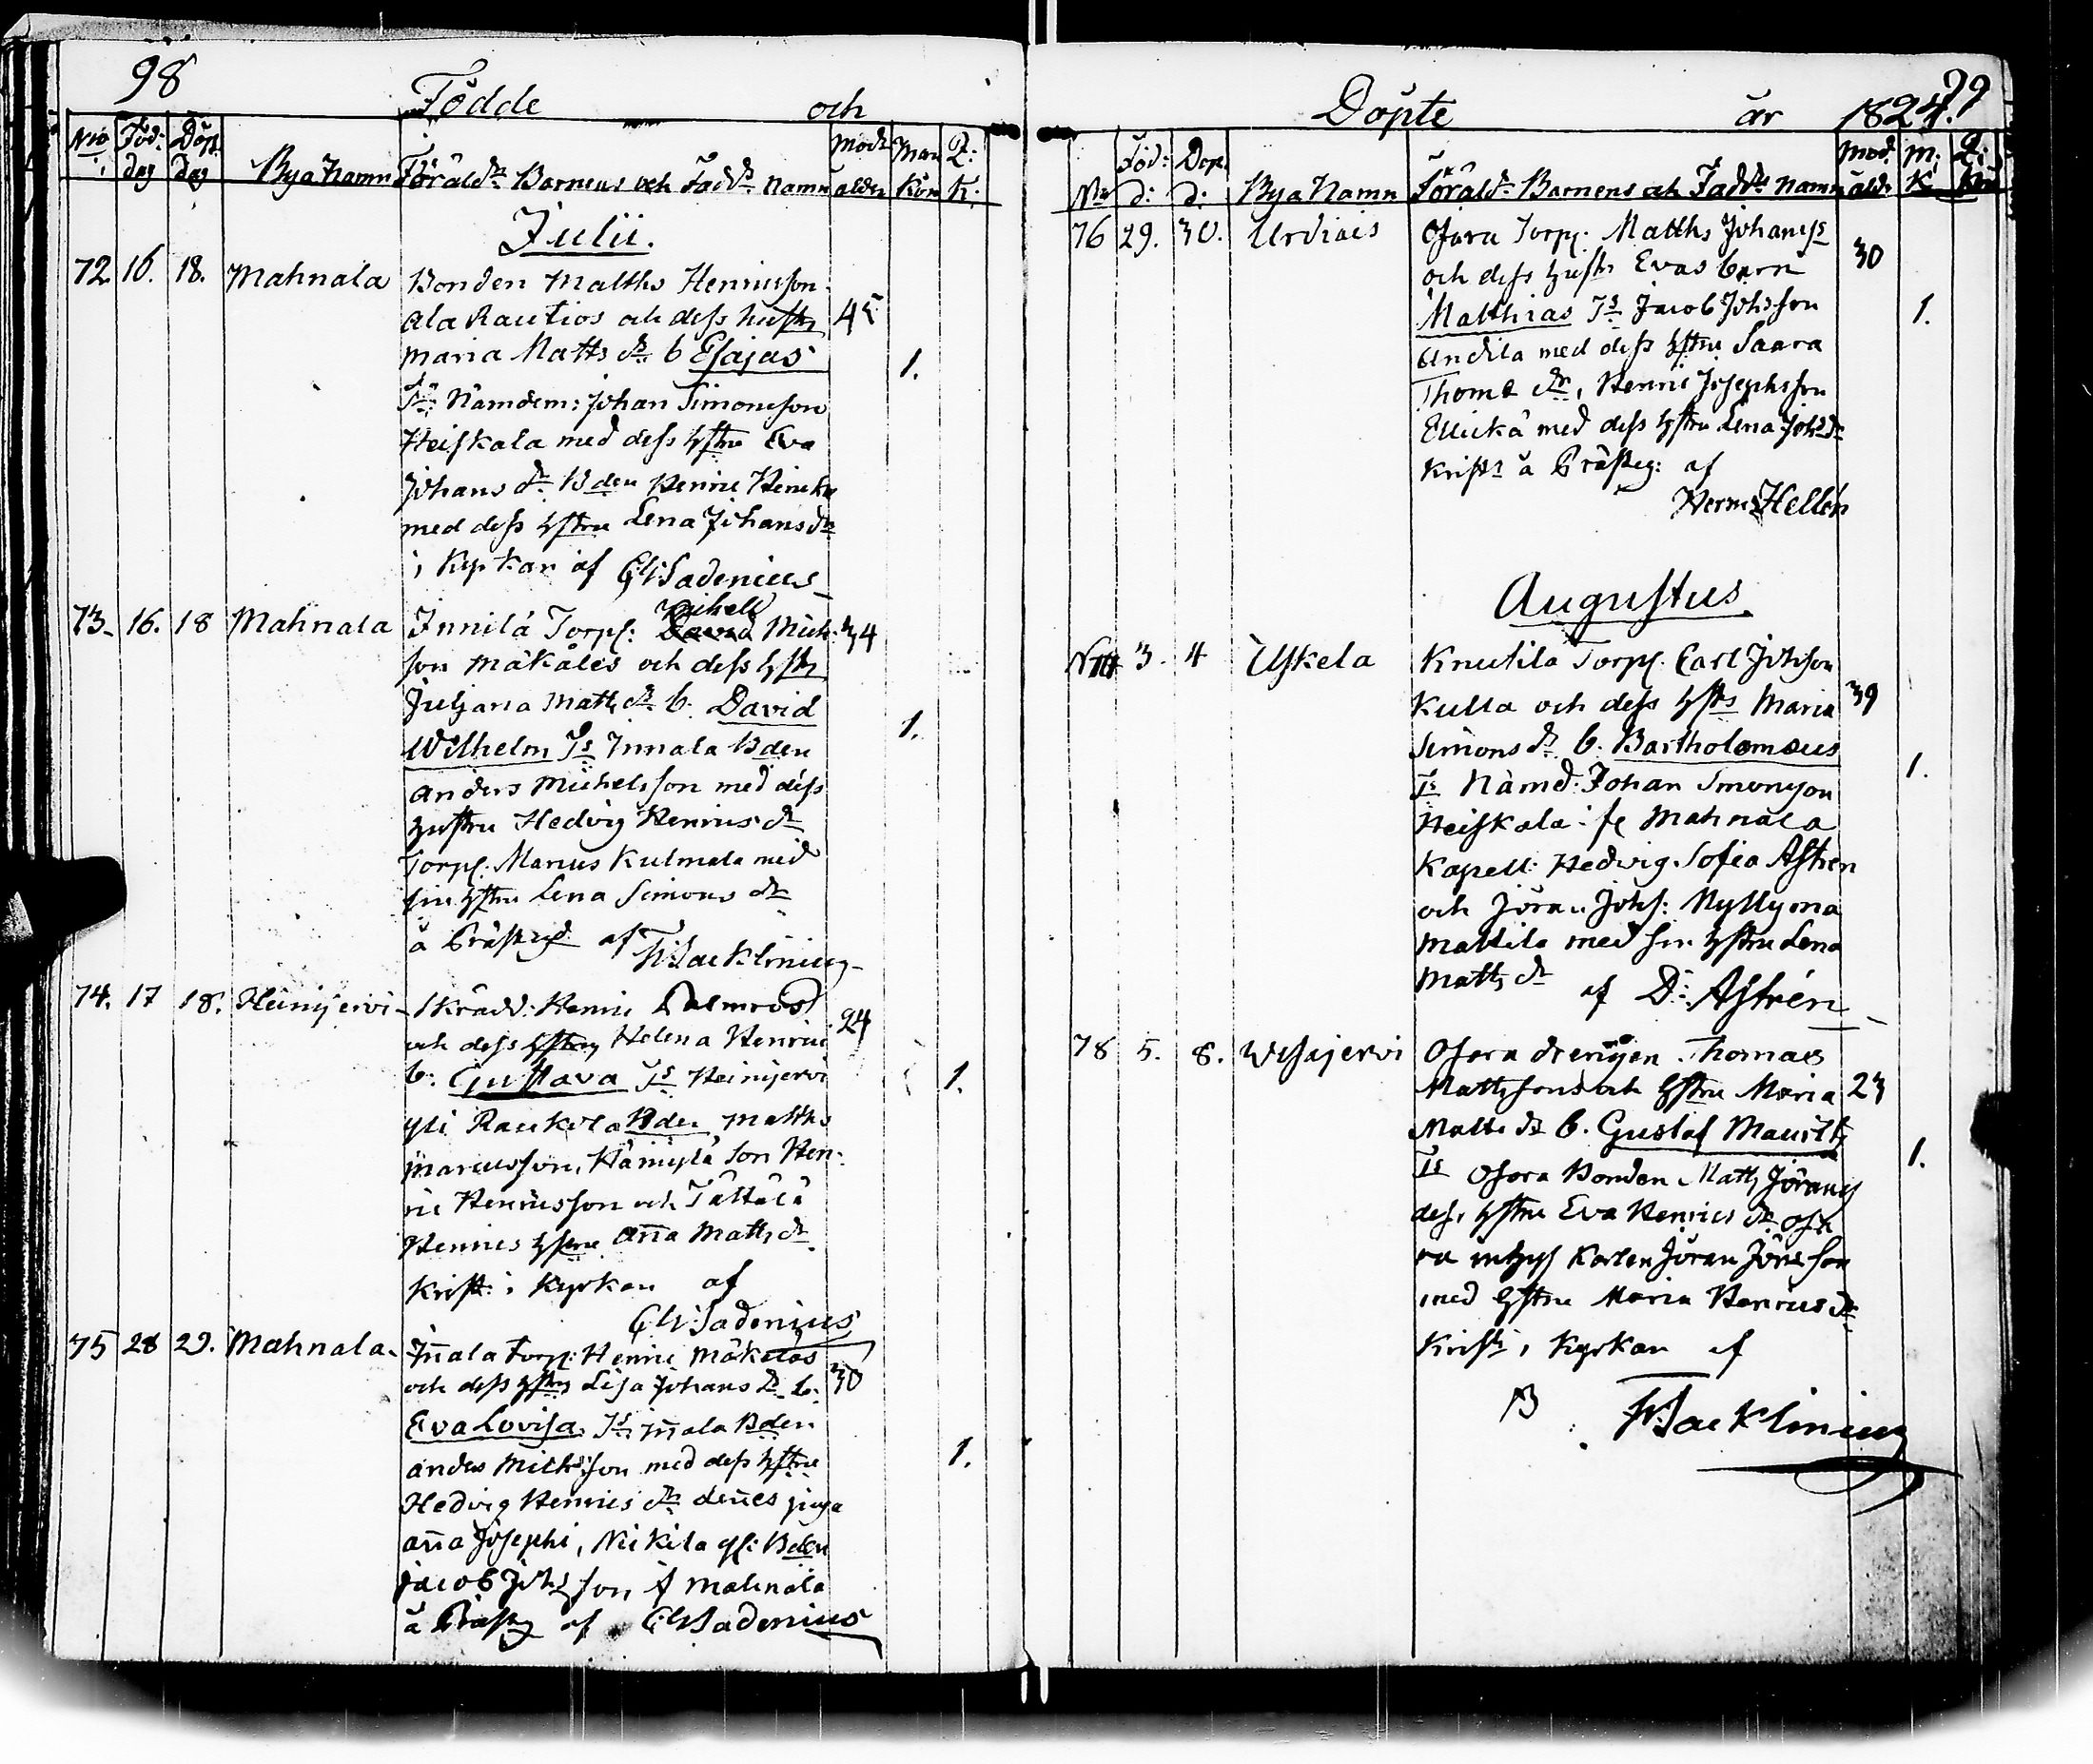 98
Födde och
Nro Föd: dag Döp. dag Bya Namn Föräld:rs Barnens och Fadd:rs namn Mod:r alder Man Kön Q: K:
Julii.
72. 16. 18. Mahnala Bonden Matths Henricsson
ala Rautios och dess hustr 45
maria Matts dr b Esajas
1.
Ts: Nämdem: Johan Simonsson
Heiskala med dess hstru Eva
Johans dr Bden Henric
med dess hstru Lena Johans dr
i Kyrkan af Sadenius
73. 16. 18 Mahnala Innilä Torp: Michell David Mich: 34
son Mäkäles och dess hstr
Juljana Matts dr b. David
1.
Wilhelm Ts Innala Bden
anders Michelsson med dess
hustru Hedvig Henrics dr
Torp: Marcus Kulmala med
sin hstru Lena Simons dr
å Prästegd af
Backlinius
74. 17 18. Heinijervi Skrädd: Henric Palmroos
och dess hstrus Helena Henrics 24
b: Gustava Ts Heinijervi
1.
yli Raukola Bden Matths
Marcusson, Hämylä Son Hen-
ric Henricsson och Tättälä
Henrics hstru Anna Matts dr
Krist: i Kyrkan af
Sadenius
75 28 29. Mahnala Innala torp: Henric Mäkeläs
och dess hstrus Lisa Johans dr b. 30
Eva Lovisa. Ts. Innala Bden
anders Michsson med dess hstru 1.
Hedvig Henrics dr denes piga
anna Josephi, Nikila Bden
Jacob Johsson, f Mahnala
å Prästg af Sadenius
99
Döpte år 1824.
Nro Föd: d: Döp. d: Bya Namn Föräld:r Barnens och Fadd:rs namn Mod:r ald:r M: K Q: Kön
76 29. 30. Urdiais Ofara Torp: Matths Johanss
och dess hustr Evas barn 30
Matthias Ts Jacob Johsson 1.
Andila med dess hstru Saara
Thome dr, Henric Josephsson
Ellickä med dess hstru Lena Joh dr
Krist å Prästeg: af
Herm Hellén
Augustus.
3. 4 Uskela Knutila Torp. Carl Johsson
Kulla och dess hstrs Maria 39
Simons dr b. Bartholomæus
1.
Ts Nämd: Johan Simonson
Heiskala fr Mahnala
Kapell: Hedvig Sofia Astren
och Jöran Johs: Myllymä
Mattila med sin hstru Lena
Matts dr af D: Astrén
78 5. 8. Wesajervi Ofara drengen Thomas
Mattssons och hstru Maria 23
Matts dr b. Gustaf Mauritz
1.
Ts Ofara Bonden Matts Jörans
dess hstru Eva Henrics dr Ofa
ra inhys Karlen Jöran Jörsson
med hstru Maria Henrics dr
Krist i Kyrkan af
Backlinius